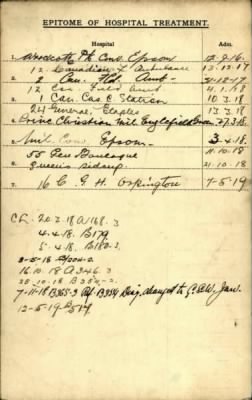 EPITOME OF HOSPITAL TREATMENT.
Hospital Adm.
1. Woodcott Pk Conv. Epsom 12.9.16
12 Canadian F. Ambulance 13.12.17
2. 2 Can. Fld. Amb. 21.12.17
12 Can. Field Amb 4.1.18
3. Can. Cas. C. Station 10.3.18
24 General, Etaples 13.3.18
4. Princ Christian Mil. Englefield Green 27.3.18
5. Mil. Conv. Epsom 3.4.18
6. 55 Gen Boulogne 11.10.18
Queens Sidcup 21.10.18
7. 16 C.G.H. Orpington 7-5-19
C.L. 20.3.18 A168.3
4.4.18. B179
5.4.18. B180.3
16.10.18 A346.3
25.10.18 B354.2
7-11-18 B365-2 Diag. changed to G.S.W. Jaw.
12-5-19 B514